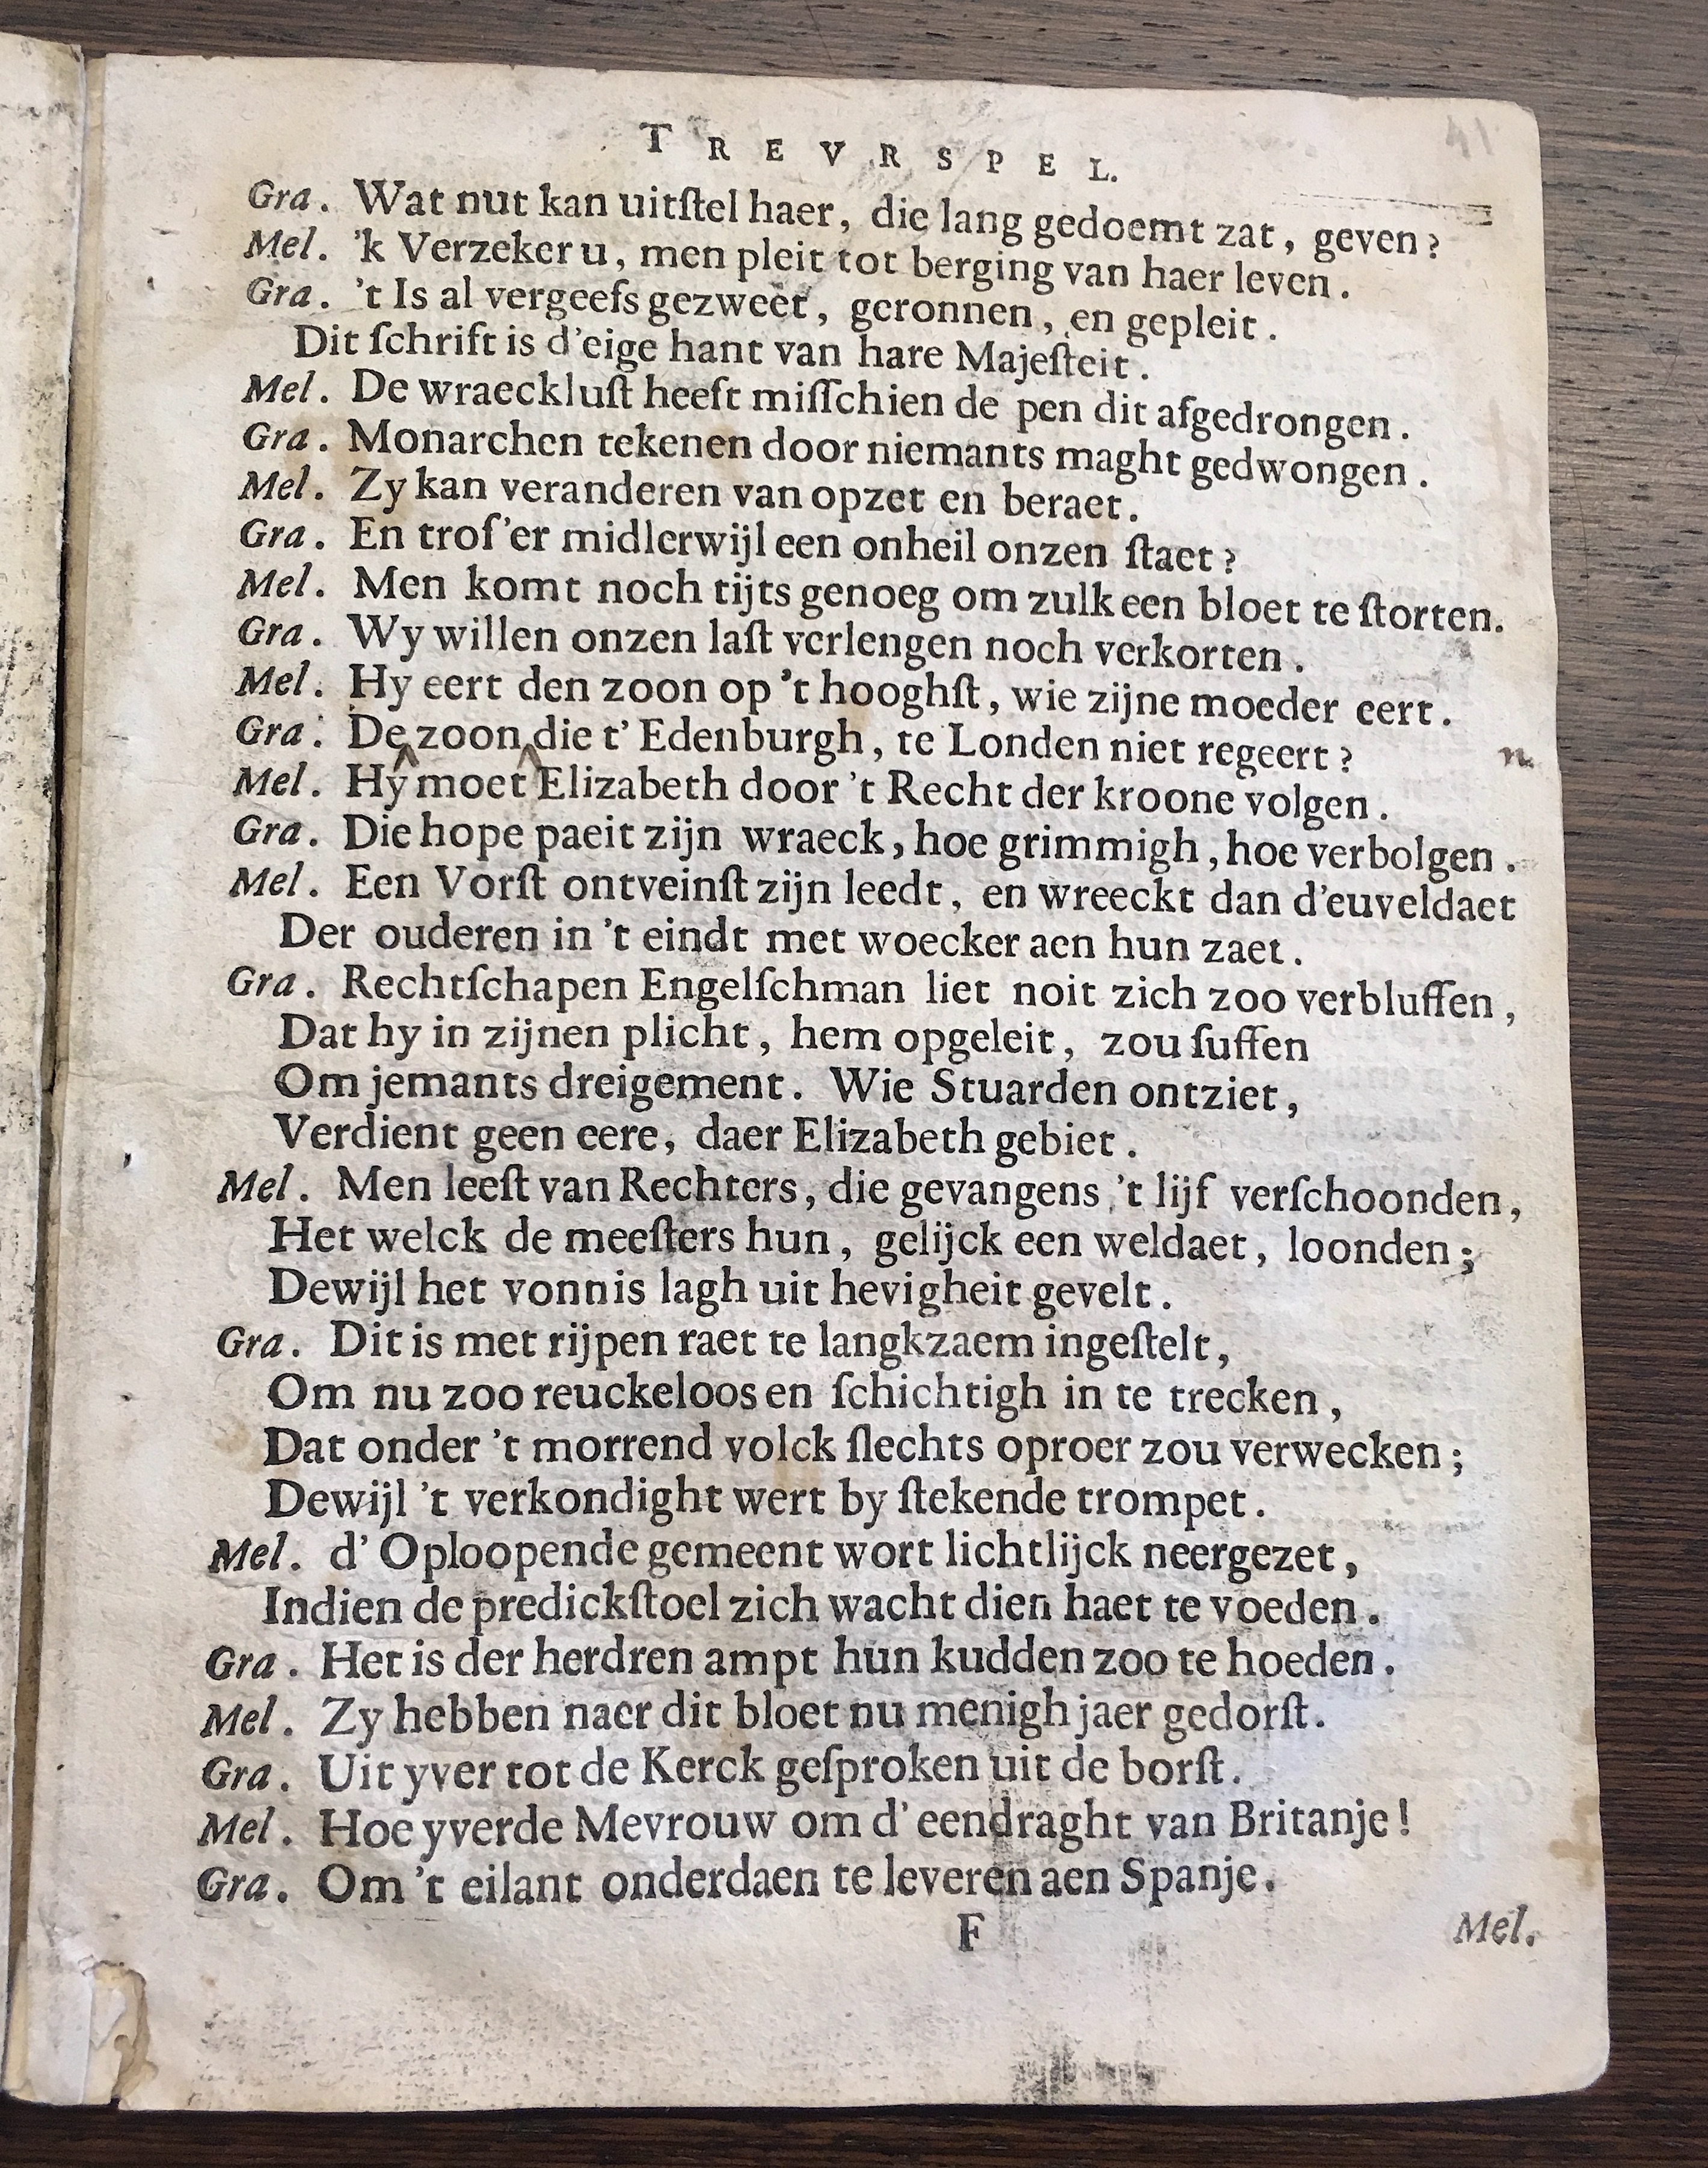 TREVRSPEL.
41
Gra. Wat nut kan uitſtel haer, die lang gedoemt zat, geven?
Mel. 'k Verzeker u, men pleit tot berging van haer leven.
Gra. 't Is al vergeefs gezweet, geronnen, en gepleit.
Dit ſchrift is d'eige hant van hare Majeſteit.
Mel. De wraeckluſt heeft miſſchien de pen dit afgedrongen.
Gra. Monarchen tekenen door niemants maght gedwongen.
Mel. Zy kan veranderen van opzet en beraet.
Gra. En trof'er midlerwijl een onheil onzen ſtaet?
Mel. Men komt noch tijts genoeg om zulk een bloet te ſtorten.
Gra. Wy willen onzen laſt verlengen noch verkorten.
Mel. Hy eert den zoon op 't hooghſt, wie zijne moeder eert.
Gra. De zoon die t' Edenburgh, te Londen niet regeert? n.
Mel. Hy moet Elizabeth door 't Recht der kroone volgen.
Gra. Die hope paeit zijn wraeck, hoe grimmigh, hoe verbolgen.
Mel. Een Vorſt ontveinſt zijn leedt, en wreeckt dan d'euveldaet
Der ouderen in 't eindt met woecker aen hun zaet.
Gra. Rechtſchapen Engelſchman liet noit zich zoo verbluffen,
Dat hy in zijnen plicht, hem opgeleit, zou ſuffen
Om jemants dreigement. Wie Stuarden ontziet,
Verdient geen eere, daer Elizabeth gebiet.
Mel. Men leeſt van Rechters, die gevangens 't lijf verſchoonden,
Het welck de meeſters hun, gelijck een weldaet, loonden;
Dewijl het vonnis lagh uit hevigheit gevelt.
Gra. Dit is met rijpen raet te langkzaem ingeſtelt,
Om nu zoo reuckeloos en ſchichtigh in te trecken,
Dat onder 't morrend volck ſlechts oproer zou verwecken;
Dewijl 't verkondight wert by ſtekende trompet.
Mel. d' Oploopende gemeent wort lichtlijck neergezet,
Indien de predickſtoel zich wacht dien haet te voeden.
Gra. Het is der herdren ampt hun kudden zoo te hoeden.
Mel. Zy hebben naer dit bloet nu menigh jaer gedorſt.
Gra. Uit yver tot de Kerck geſproken uit de borſt.
Mel. Hoe yverde Mevrouw om d' eendraght van Britanje!
Gra. Om 't eilant onderdaen te leveren aen Spanje.
F
Mel.